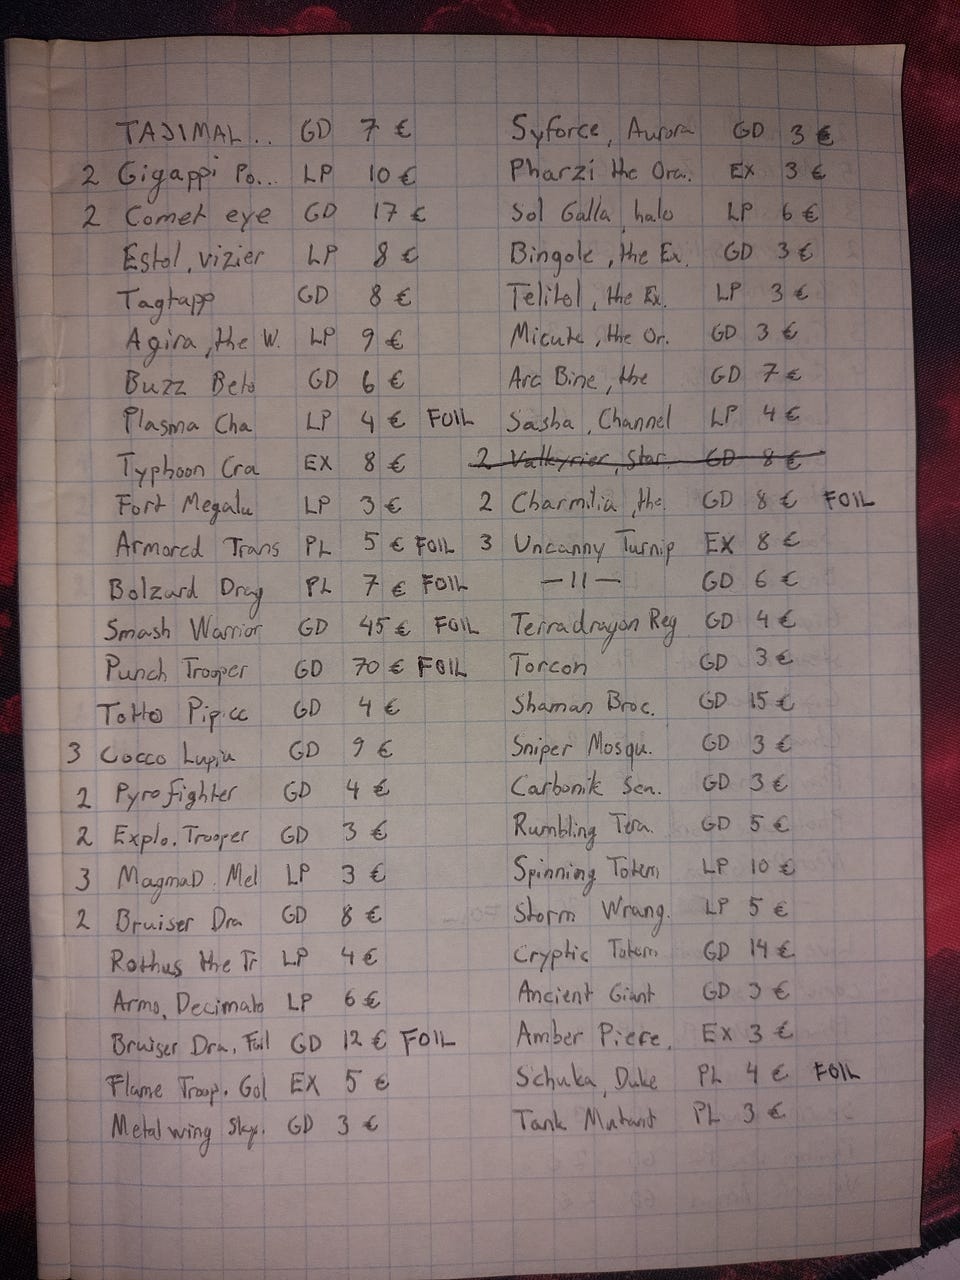 TAJIMAL.. GD 7 €
2 Gigappi Po... LP 10 €
2 Comet eye GD 17 €
Estol, vizier LP 8 €
Tagtapp GD 8 €
Agira, the W. LP 9 €
Buzz Beto GD 6 €
Plasma Cha LP 4 € FOIL
Typhoon Cra EX 8 €
Fort Megalu LP 3 €
Armored Trans PL 5 € FOIL
Bolzard Drag PL 7 € FOIL
Smash Warrior GD 45 € FOIL
Punch Trooper GD 70 € FOIL
Totto Pipicc GD 4 €
3 Cocco Lupia GD 9 €
2 Pyrofighter GD 4 €
2 Explo. Trooper GD 3 €
3 MagmaD. Mel LP 3 €
2 Bruiser Dra GD 8 €
Rothus the Tr LP 4 €
Armo, Decimato LP 6 €
Bruiser Dra, Foil GD 12 € FOIL
Flame Troop. Gol EX 5 €
Metalwing Sky. GD 3 €
Syforce, Aurora GD 3 €
Pharzi the Ora. EX 3 €
Sol Galla, halo LP 6 €
Bingole, the Ex. GD 3 €
Telitol, the Ex. LP 3 €
Micute, the Or. GD 3 €
Arc Bine, the GD 7 €
Sasha, Channel LP 4 €
2 Valkyrier, Star. GD 8 €
2 Charmilia, the GD 8 € FOIL
3 Uncanny Turnip EX 8 €
—11— GD 6 €
Terradragon Reg GD 4 €
Torcon GD 3 €
Shaman Broc. GD 15 €
Sniper Mosqu. GD 3 €
Carbonik Sen. GD 3 €
Rumbling Tera. GD 5 €
Spinning Totem LP 10 €
Storm Wrang. LP 5 €
Cryptic Totem GD 14 €
Ancient Giant GD 3 €
Amber Piere. EX 3 €
Schuka, Duke PL 4 € FOIL
Tank Mutant PL 3 €